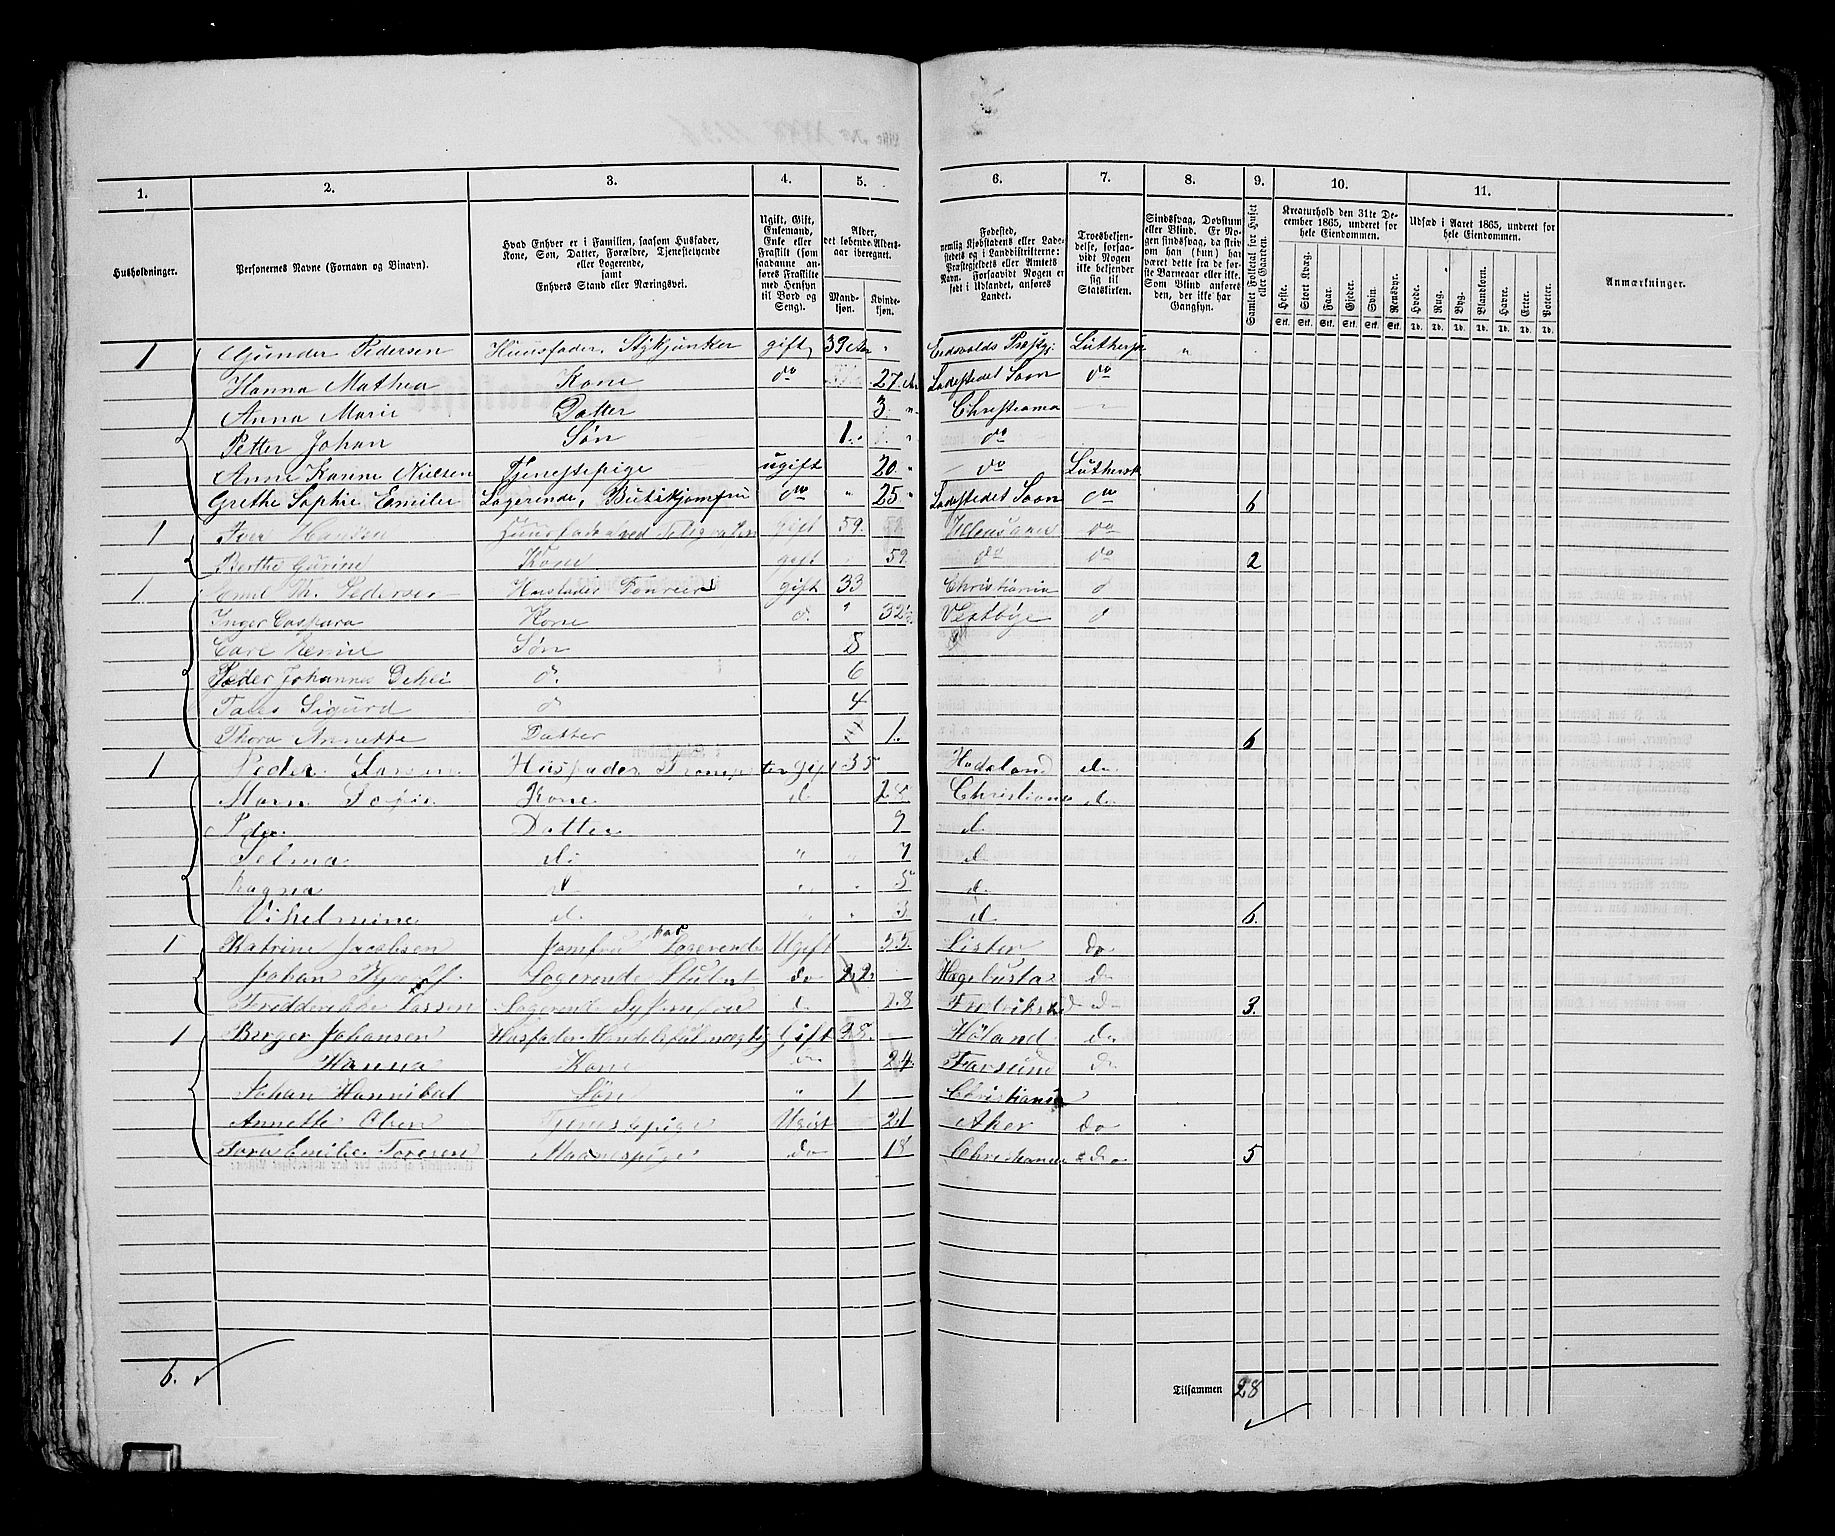 1. 2. 3. 4. 5. 6. 7. 8. 9. 10. 11.
Husholdninger.
Personernes Navne (Fornavn og Binavn).
Hvad Enhver er i Familien, saasom Husfader,
Kone, Søn, Datter, Forældre, Tjenestetyende
eller Logerende,
samt
Enhvers Stand eller Næringsvei.
Ugift, Gift,
Enkemand,
Enke eller
Fraskilt (som
saadanne an-
føres Fraskilte
med Hensyn
til Bord og
Seng).
Alder,
det løbende Alders-
aar iberegnet.
Mand-
kjøn.
Kvinde-
kjøn.
Fødested,
nemlig Kjøbstadens eller Lade-
stedets eller i Landdistrikterne:
Præstegjeldets eller Amtets
Navn. Forsaavidt Nogen er
født i Udlandet, anføres
Landet.
Troesbekjen-
delse, forsaa-
vidt Nogen
ikke bekjender
sig til
Statskirken.
Sindssvag, Døvstum
eller Blind. Er No-
gen sindssvag, da skriv
om han (hun) har
været dette fra de før-
ste Barneaar eller ikke.
Som Blind anføres
den, der ikke har
Gangsyn.
Samlet Folketal for Huset
eller Gaarden.
Kreaturhold den 31te De-
cember 1865, underet for
hele Eiendommen.
Heste. Stort Kvæg. Faar. Gjeder. Svin. Rensdyr.
Stk. Stk. Stk. Stk. Stk. Stk.
Udsæd i Aaret 1865, underet for
hele Eiendommen.
Hvede. Rug. Byg. Blandkorn. Havre. Erter. Poteter.
Td. Td. Td. Td. Td. Td. Td.
Anmærkninger.
1 Gunder Pedersen Huusfader, Stykjunker gift 39 Aar " Eidsvolds Præstgj. Luthersk "
Hanna Mathea Kone do 27. Ladestedet Soon do
Anna Marie Datter 3. " Christiania
Petter Johan Søn 1. " do
Anne Karine Nielsen Tjenestepige ugift 20. " do Luthersk
Grethe Sophie Emilie Logerende, Butikjomfru do " 25 " Ladestedet Soon do 6
1 Iver Hansen Gift 59. do
Berthe Gurine Kone gift 59 do do 2
1 Emil Th. Pedersen Husfader gift 33 Christiania d
Inger Caspara Kone d. " 32 Vestbye d
Carl Søn 8
Peder Johannes d. 6
Sigurd d 4
Thora Annette Datter 1. 6
1 Peder Husfader gift 35 Hadeland do
Kone d. 28 Christiania do
Datter 9 d.
Selma do " " 7 d
Ragna d " . 5 d.
Vilhelmine d. " " 3 d 6.
1 Katrine Jacobsen Jomfru har Logerende Ugift 55. Lister do
Johan Logerende Student do 22. Hægebusta d.
Fredderikke Larsen Logerende d. 28 Fredrikstad do 3.
1 Berger Johansen Husfader Handelsfulmægtig Gift 28. Høland do
Hanna Kone do 24. Farsund do
Johan Hannibal Søn " 1 Christiania
Annette Olsen Tjenestepige Ugift 21 Aker do
Tora Emilie Toresen do 18 Christiania do 5
6.
Tilsammen 28